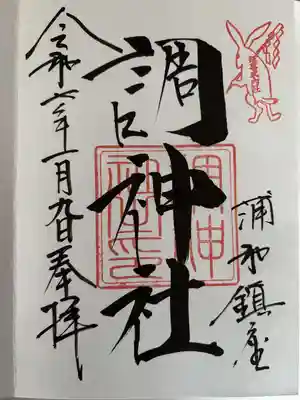 浦和鎮座
調神社
調神社印
令和六年一月九日奉拝